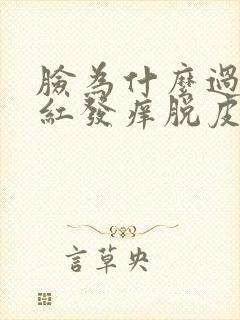 臉為什麼過
紅發痒脫皮
言草央